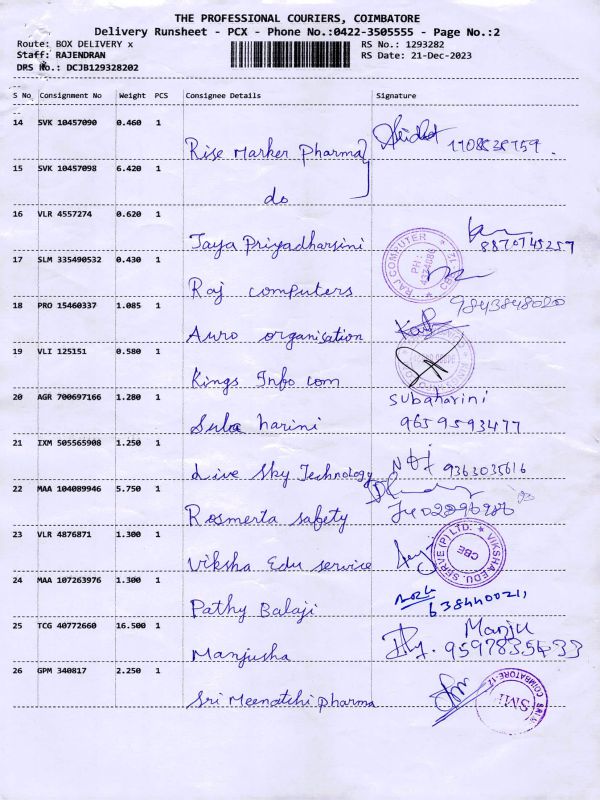 THE PROFESSIONAL COURIERS, COIMBATORE
Delivery Runsheet - PCX - Phone No.:0422-3505555 - Page No.:2
Route: BOX DELIVERY x RS No.: 1293282
Staff: RAJENDRAN RS Date: 21-Dec-2023
DRS No.: DCJB129328202
S No Consignment No Weight PCS Consignee Details Signature
14 SVK 10457090 0.460 1
Rise Marker Pharma
15 SVK 10457098 6.420 1
do
16 VLR 4557274 0.620 1
Jaya Priyadharsini 8870745257
17 SLM 335490532 0.430 1
Raj computers RAJ COMPUTER
18 PRO 15460337 1.085 1 9843848020
Auro organisation
19 VLI 125151 0.580 1
Kings Info com
20 AGR 700697166 1.280 1 Subaharini
Suba harini 9659593477
21 IXM 505565908 1.250 1
Live Sky Technology 9363035616
22 MAA 104089946 5.750 1
Rosmerta safety
23 VLR 4876871 1.300 1
Viksha Edu service VIKSHA EDU. SERVE (P) LTD. CBE
24 MAA 107263976 1.300 1
Pathy Balaji
25 TCG 40772660 16.500 1 Manju
Manjusha
26 GPM 340817 2.250 1
Sri Meenatchi pharma SMI